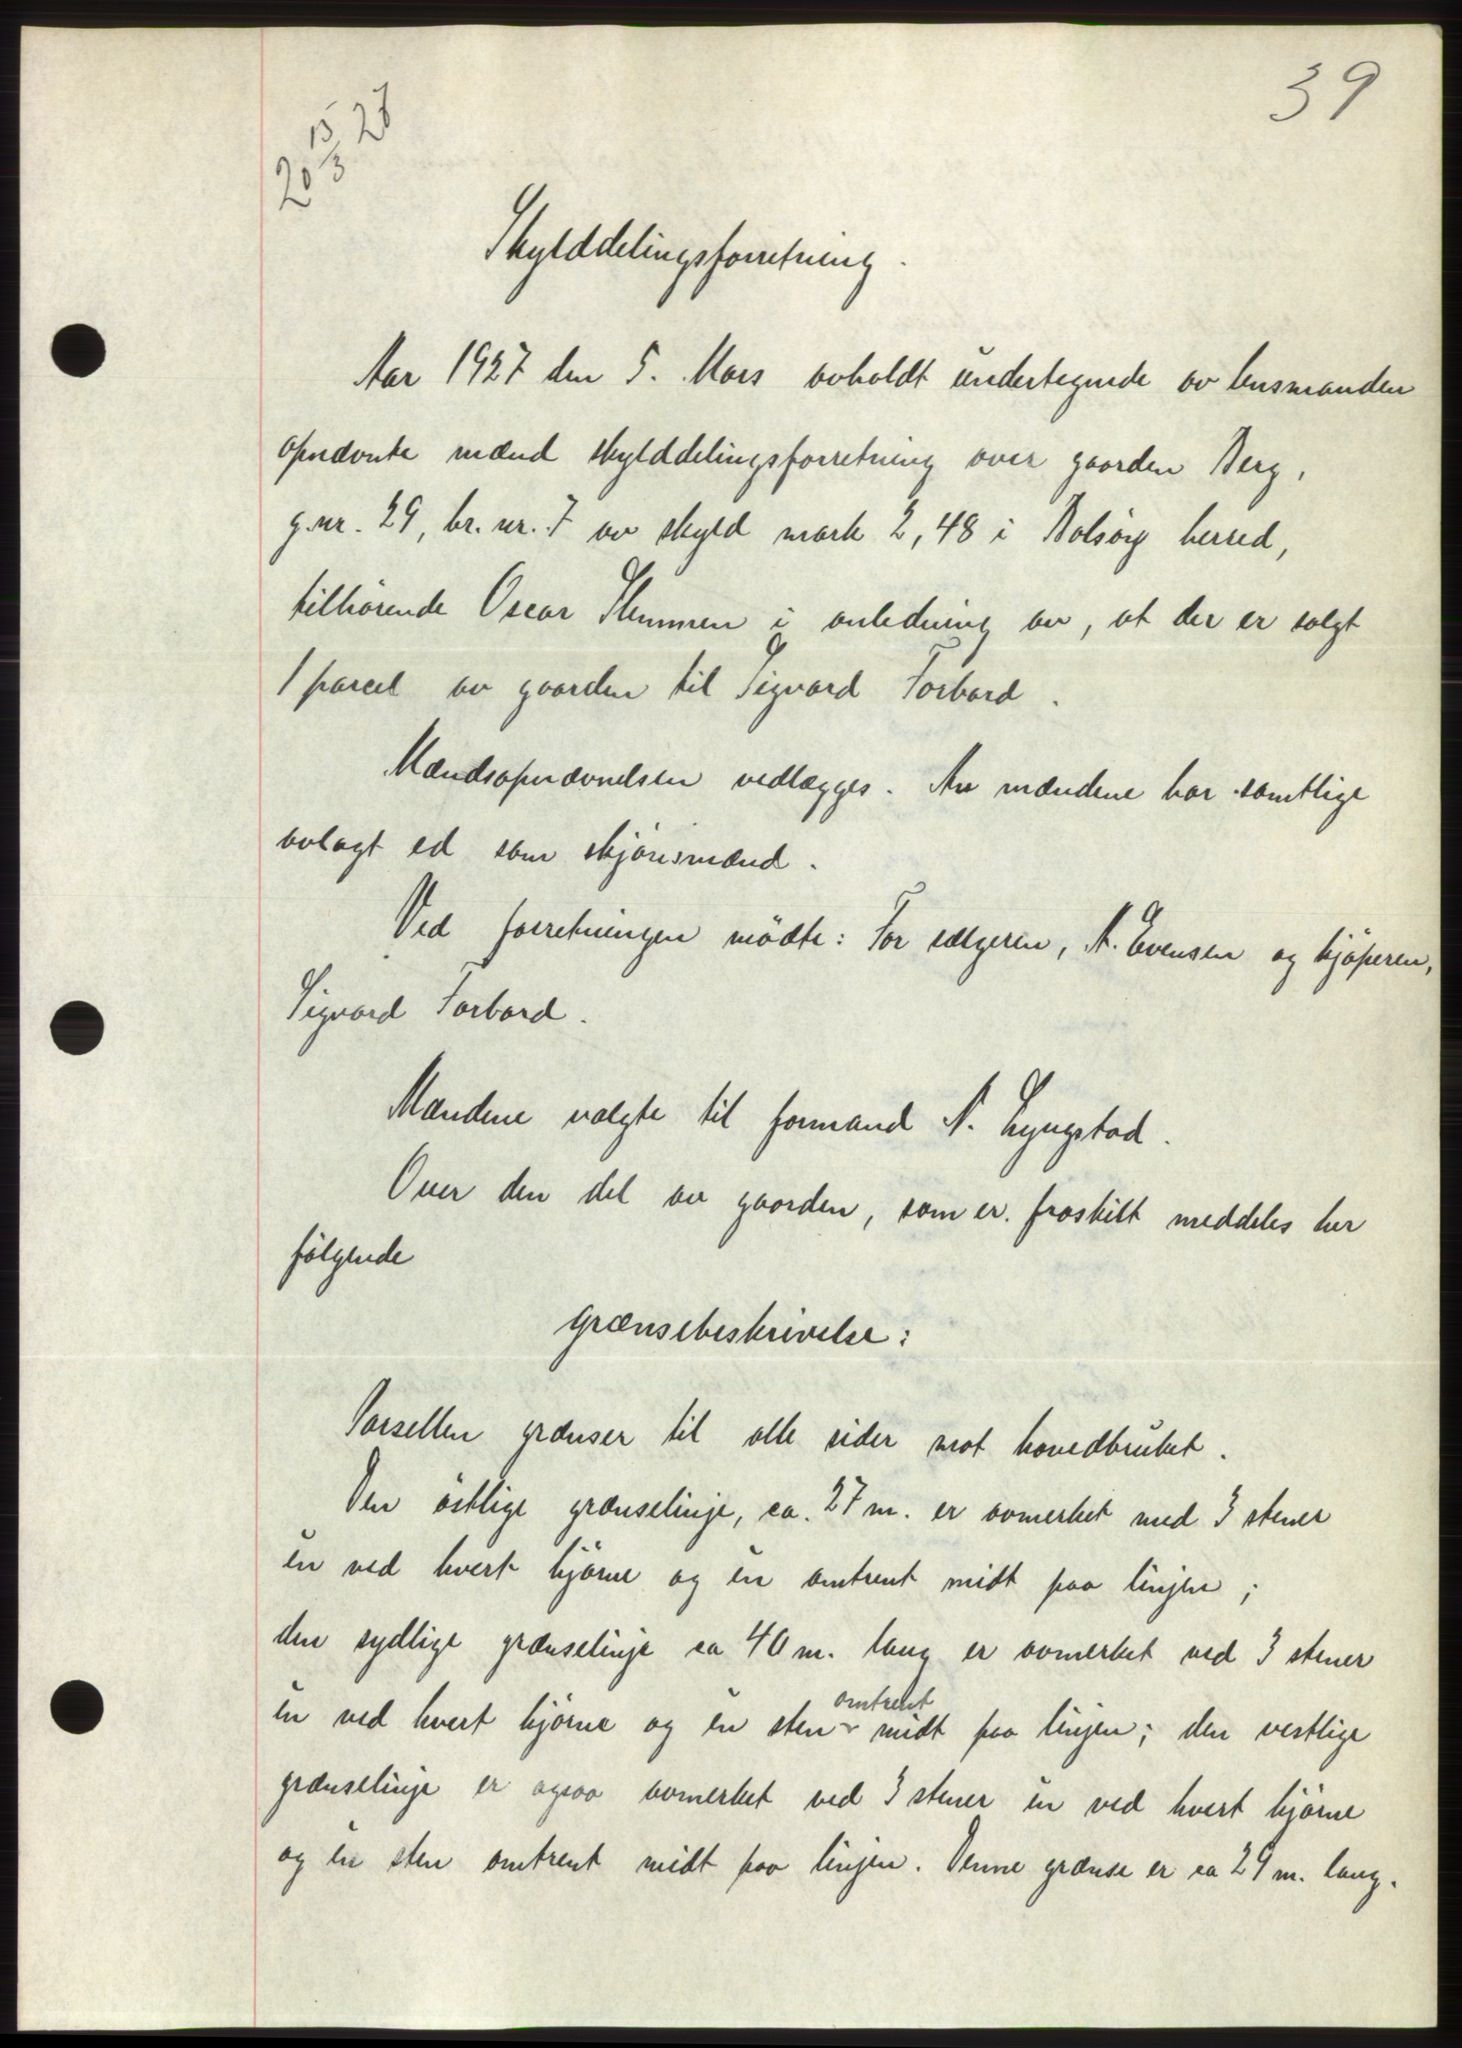 39
20 15/3 27
Skylddelingsforretning.
Aar 1927 den 5. Mars avholdt undertegnede av lensmanden
opnævnte mænd skylddelingsforretning over gaarden Berg,
g.nr. 29, br. nr. 7 av skyld mark 2,48 i Bolsøy herred,
tilhørende Oscar Stemmen i anledning av, at der er solgt
1 parcel av gaarden til Sigvard Forbord.
Mændsopnævnelsen vedlægges. Av mændene har samtlige
avlagt ed som skjønsmænd.
Ved forretningen mødte: For sælgeren, A. Evensen og kjøperen,
Sigvard Forbord.
Mændene valgte til formand N. Lyngstad.
Over den del av gaarden, som er fraskilt meddeles her
følgende
grænsebeskrivelse:
Parsellen grænser til alle sider mot hovedbruket.
Den østlige grænselinje, ca. 27 m. er avmerket med 3 stener
én ved hvert hjørne og én omtrent midt paa linjen;
den sydlige grænselinje ca 40 m. lang er avmerket ved 3 stener
én ved hvert hjørne og én sten omtrent midt paa linjen; den vestlige
grænselinje er ogsaa avmerket ved 3 stener én ved hvert hjørne
og én sten omtrent midt paa linjen. Denne grænse er ca 29 m. lang.